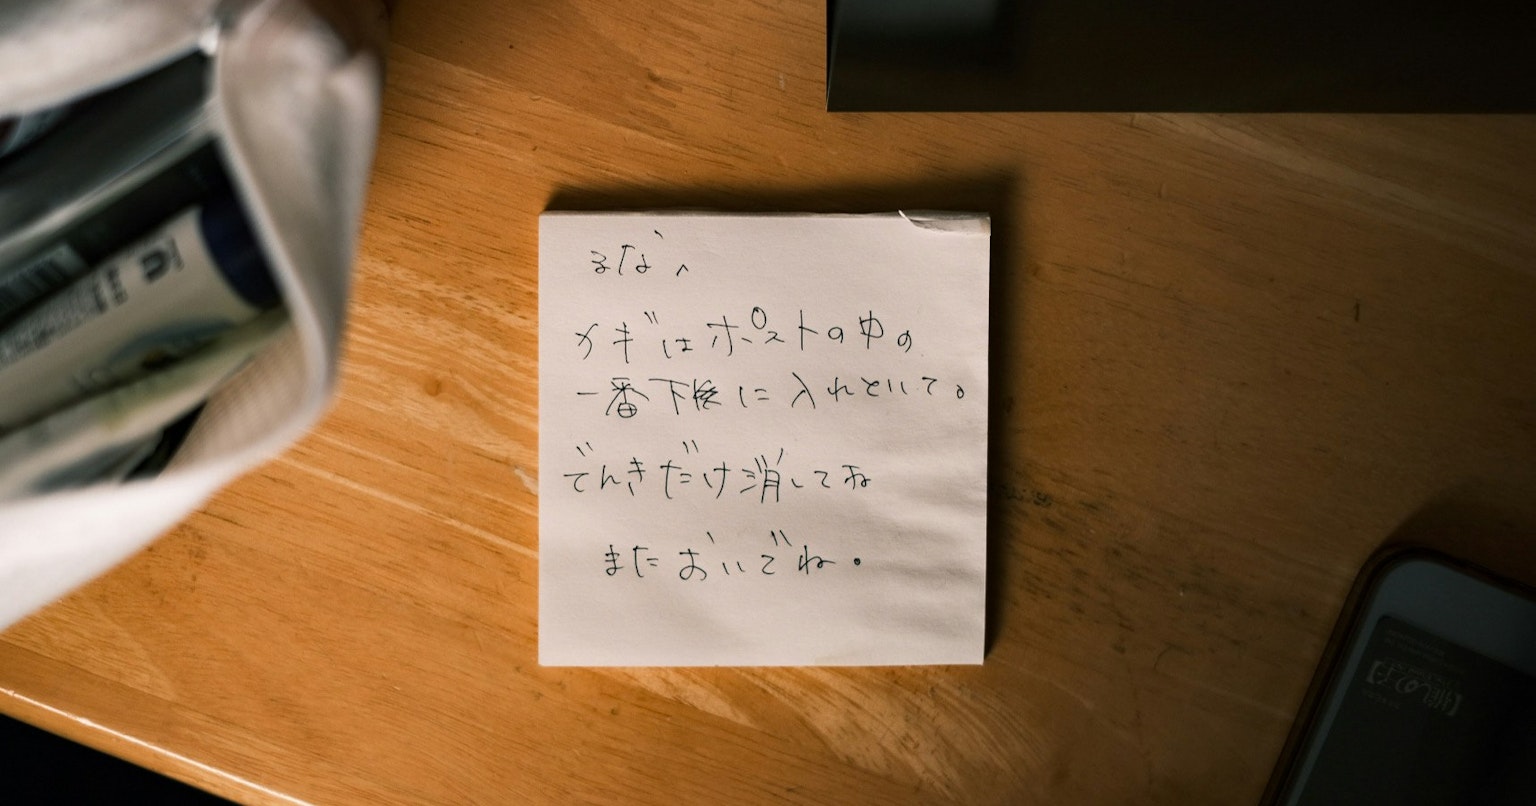 るなへ
カギはポストの中の
一番下後に入れといて。
でんきだけ消してね
またおいでね。